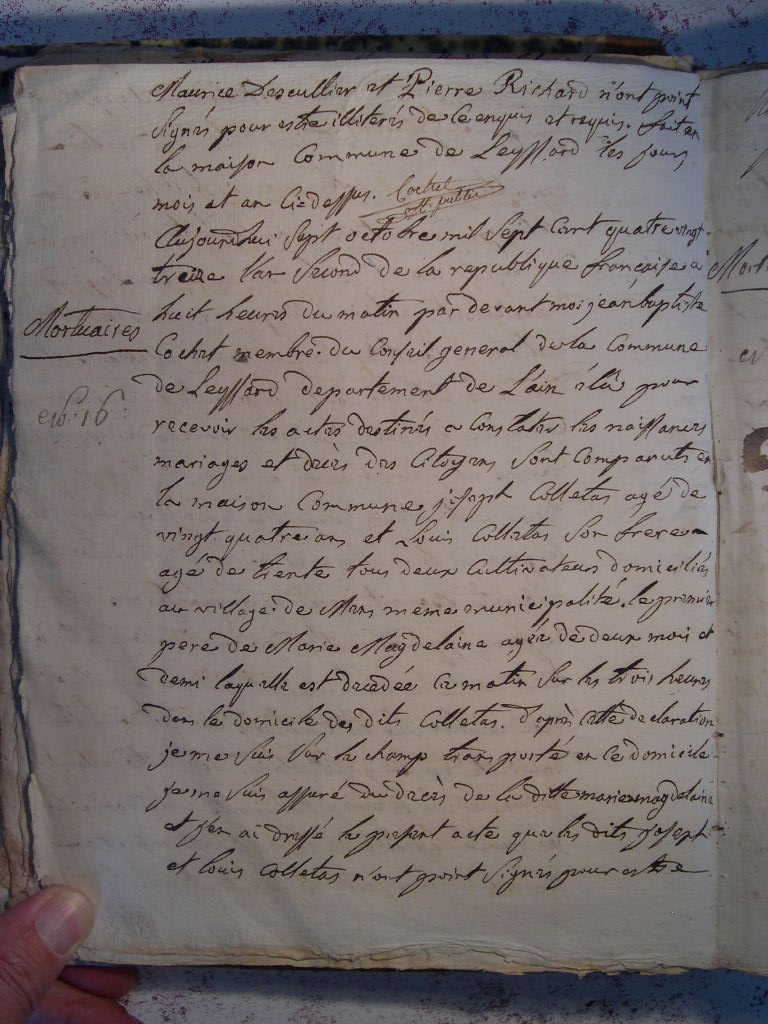 Maurice Descullier et Pierre Richard n'ont point
Signés pour estre illiterés de ce enquis et requis. fait en
la maison Commune de Leyssard les jours
mois et an Ci=dessus. Cochet
off. public
Aujourdhui Sept octobre mil Sept Cent quatre vingt
treize l'an Second de la republique françaiſe a
huit heures du matin par devant moi jean baptiste
Mortuaires
Cochet membre du Conseil general de la Commune
de Leyssard departement de L'ain élû pour
No. 16
recevoir les actes destinés a Constater les naissances
mariages et décès des Citoyens Sont Comparuts en
la maison Commune joseph Colletas agé de
vingt quatre ans et Louis Colletas Son frere
agé de trente tous deux Cultivateurs domiciliés
au village de Mens meme municipalité. le premier
pere de Marie Magdelaine agée de deux mois et
demi laquelle est decedée Ce matin Sur les trois heures
dans le domicile des dits Colletas. d'après cette declaration
je me Suis Sur le champ transporté en ce domicile
je me Suis assuré du décès de la ditte marie magdelaine
et j'en ai dressé le present acte que les dits joseph
et louis Colletas n'ont point Signés pour estre